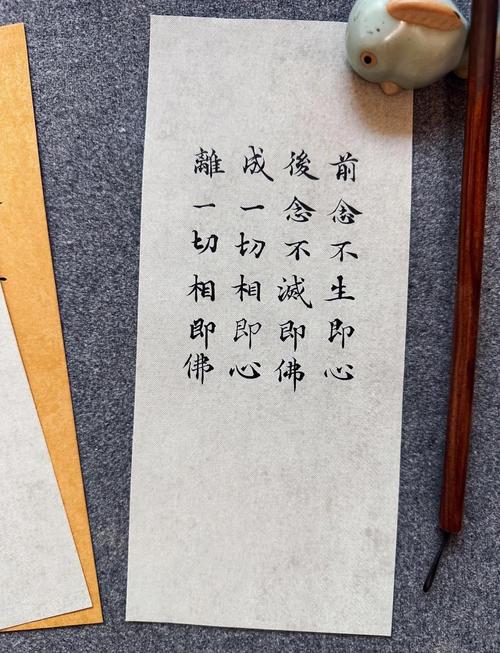 前念不生即心
後念不滅即佛
成一切相即心
離一切相即佛